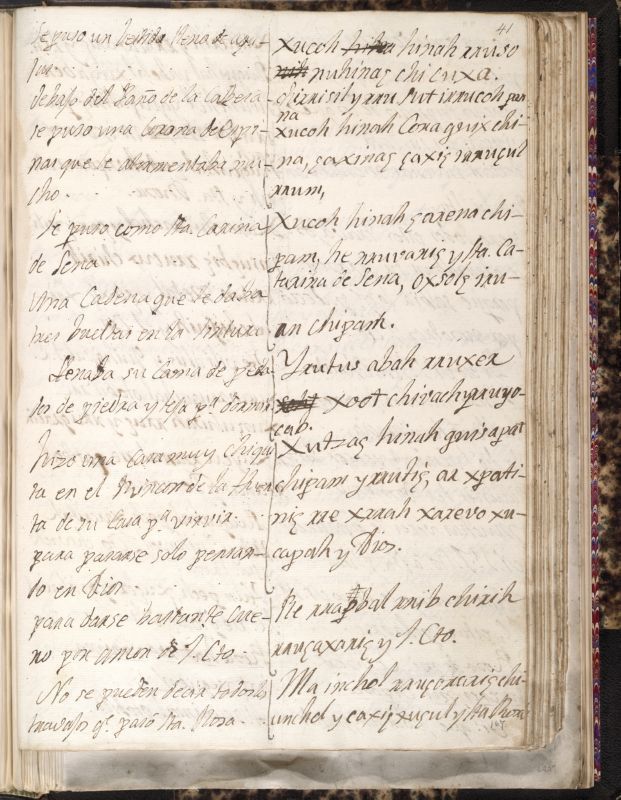 41
Se puso un bestido llena de agu-
jas
debajo del paño de la Cabeza
se puso una Corona de Espi-
nas que le atormentaba mu-
cho.
Se puso como sta. Catarina
de Sena
una Cadena que le daba
tres bueltas en la sintura
llenaba su cama de peda
sos de piedra y teja pa dormir
hizo una casa muy chiqui
ta en el Rincon de la huer
ta de su Casa pa vivir
para pararse solo pensan-
do en Dios
para darse bastante Cue-
ro por amor de J. Cto.
No se pueden decir todos los
travajos q. pasó Sta. Rosa.
Xucoh hinah rruso
nuhinaς chi cuxa.
chirrisil y rru sut irrucoh
na
xucoh hinah Cora quix chi-
na, ςaxinaς ςaxiς irruςul
rrum,
Xucoh hinah ςarena chi-
pam, he rruvariς y Sta. Ca-
tarina de Sena, oxoleς iru-
an chipam.
Y rutus abah rruxer
xoot chivach y rruyo-
cab.
Xutzaς hinah
chipam y rrutiς ar xpati-
niς rre xrrah xarevo xu-
capah y Dios.
Re rrabal rrib chirih
rruςaxariς y J. Cto.
Ma inchel chi-
unchel y caxiς xuςul y Sta Rosa